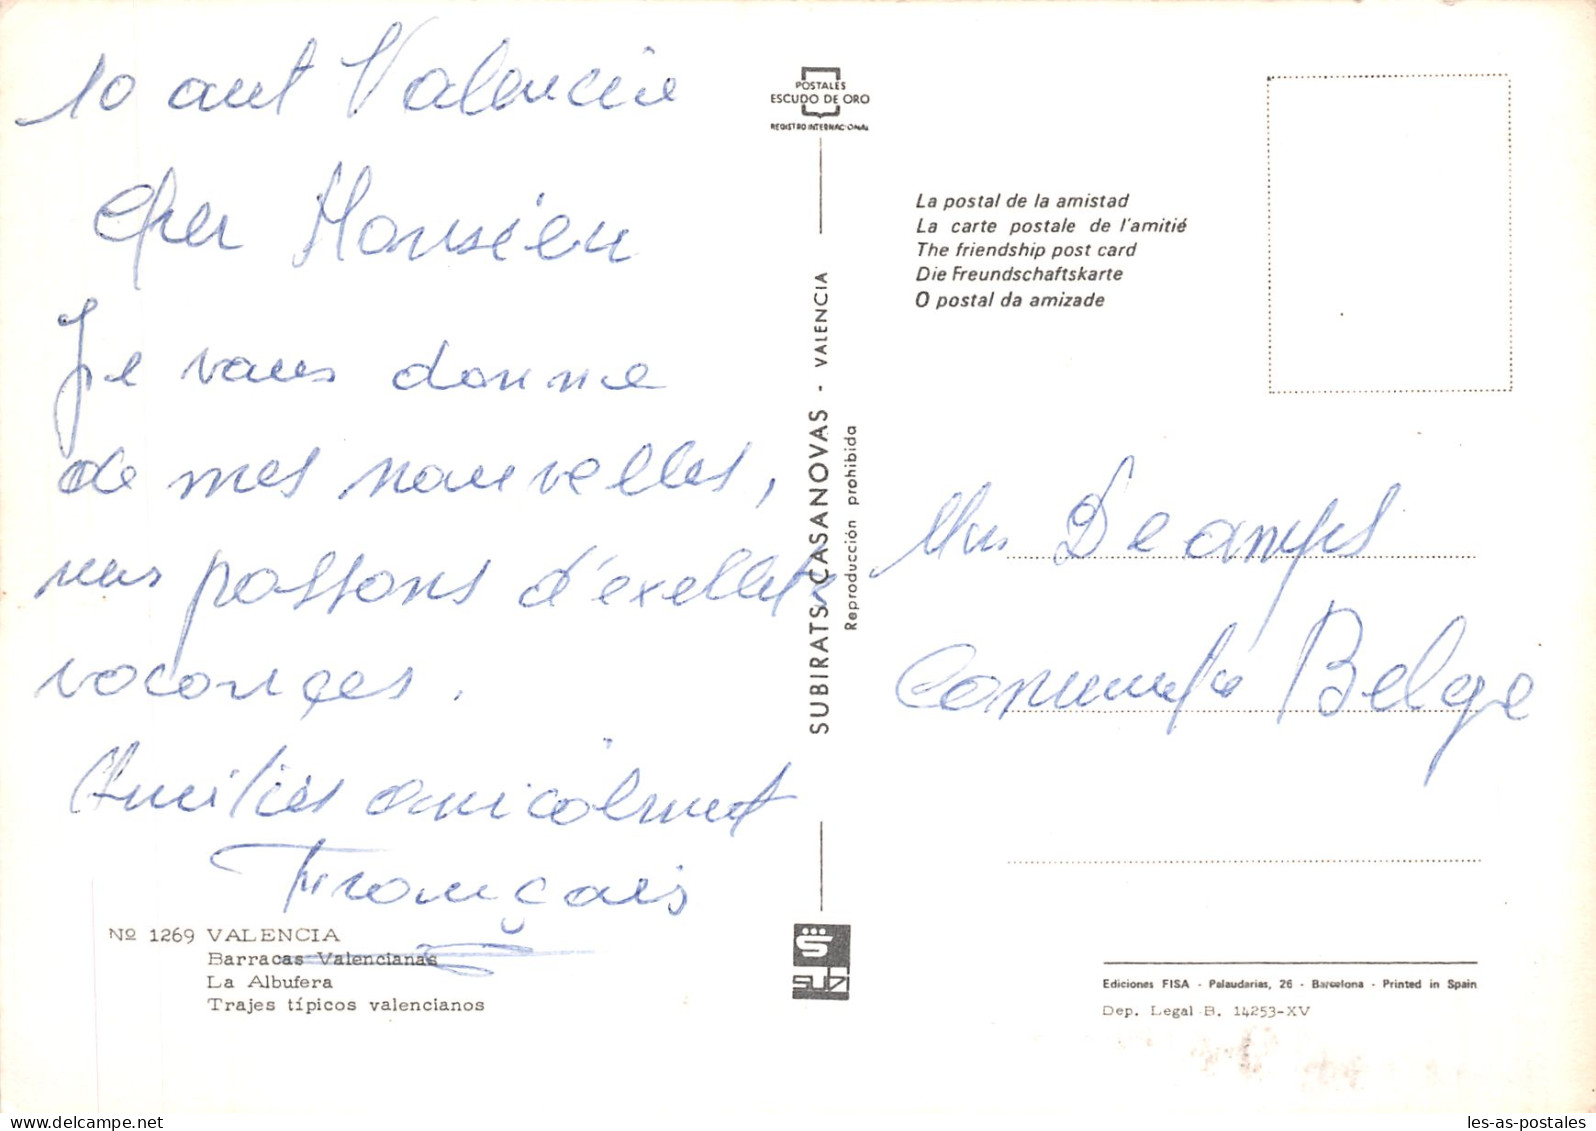 10 aut Valencia
Cher Monsieu
Je vous donne
de mes nouvelles,
nus passons d'exellets
vacances.
Amitiés amicalemet
François
Nº 1269 VALENCIA
Barracas Valencianas
La Albufera
Trajes típicos valencianos
POSTALES
ESCUDO DE ORO
REGISTRO INTERNACIONAL
SUBIRATS CASANOVAS - VALENCIA
Reproducción prohibida
SUBI
La postal de la amistad
La carte postale de l'amitié
The friendship post card
Die Freundschaftskarte
O postal da amizade
Belge
Ediciones FISA - Palaudarias, 26 - Barcelona - Printed in Spain
Dep. Legal B. 14253-XV
les-as-postales